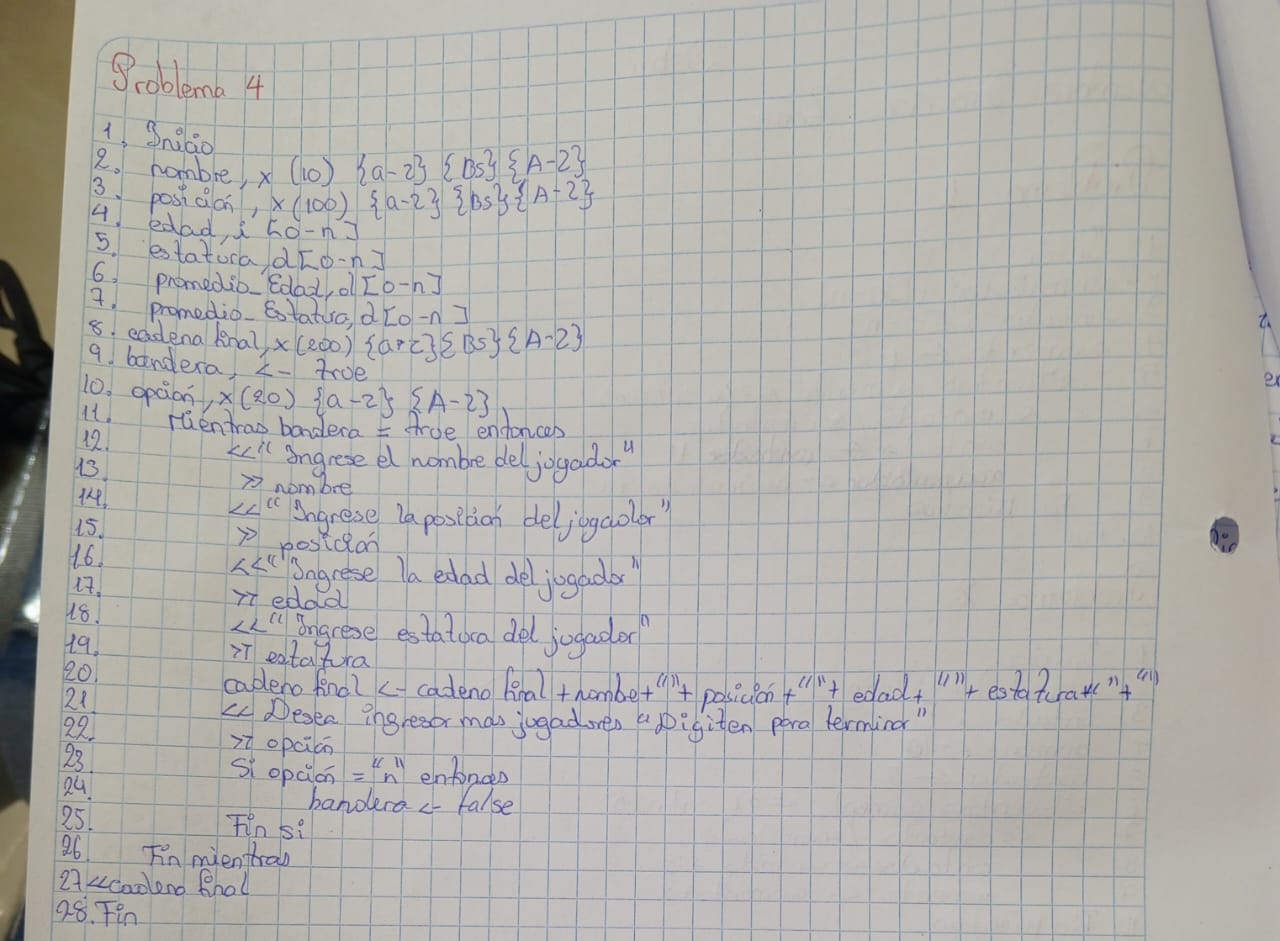 Problema 4
1. Inicio
2. nombre, x (10) {a-z} {Bs} {A-Z}
3. posición, x(100) {a-z} {Bs} {A-Z}
4. edad, i [0-n]
5. estatura, d[0-n]
6. promedio_Edad, d[0-n]
7. promedio_Estatura, d[0-n]
8. cadena final, x(200) {a-z} {Bs} {A-Z}
9. bandera, <- true
10. opción, x(20) {a-z} {A-Z}
11. Mientras bandera = true entonces
12. <<"Ingrese el nombre del jugador"
13. >> nombre
14. <<"Ingrese la posición del jugador"
15. >> posición
16. <<"Ingrese la edad del jugador"
17. >> edad
18. <<"Ingrese estatura del jugador"
19. >> estatura
20. cadena final <- cadena final + nombe+""+ posición+""+ edad+ ""+ estatura+""+""
21 << Desea ingresar mas jugadores "Digite n para terminar"
22. >> opción
23 Si opción = "n" entonces
24. bandera <- false
25. Fin si
26 Fin mientras
27 <<cadena final
28. Fin